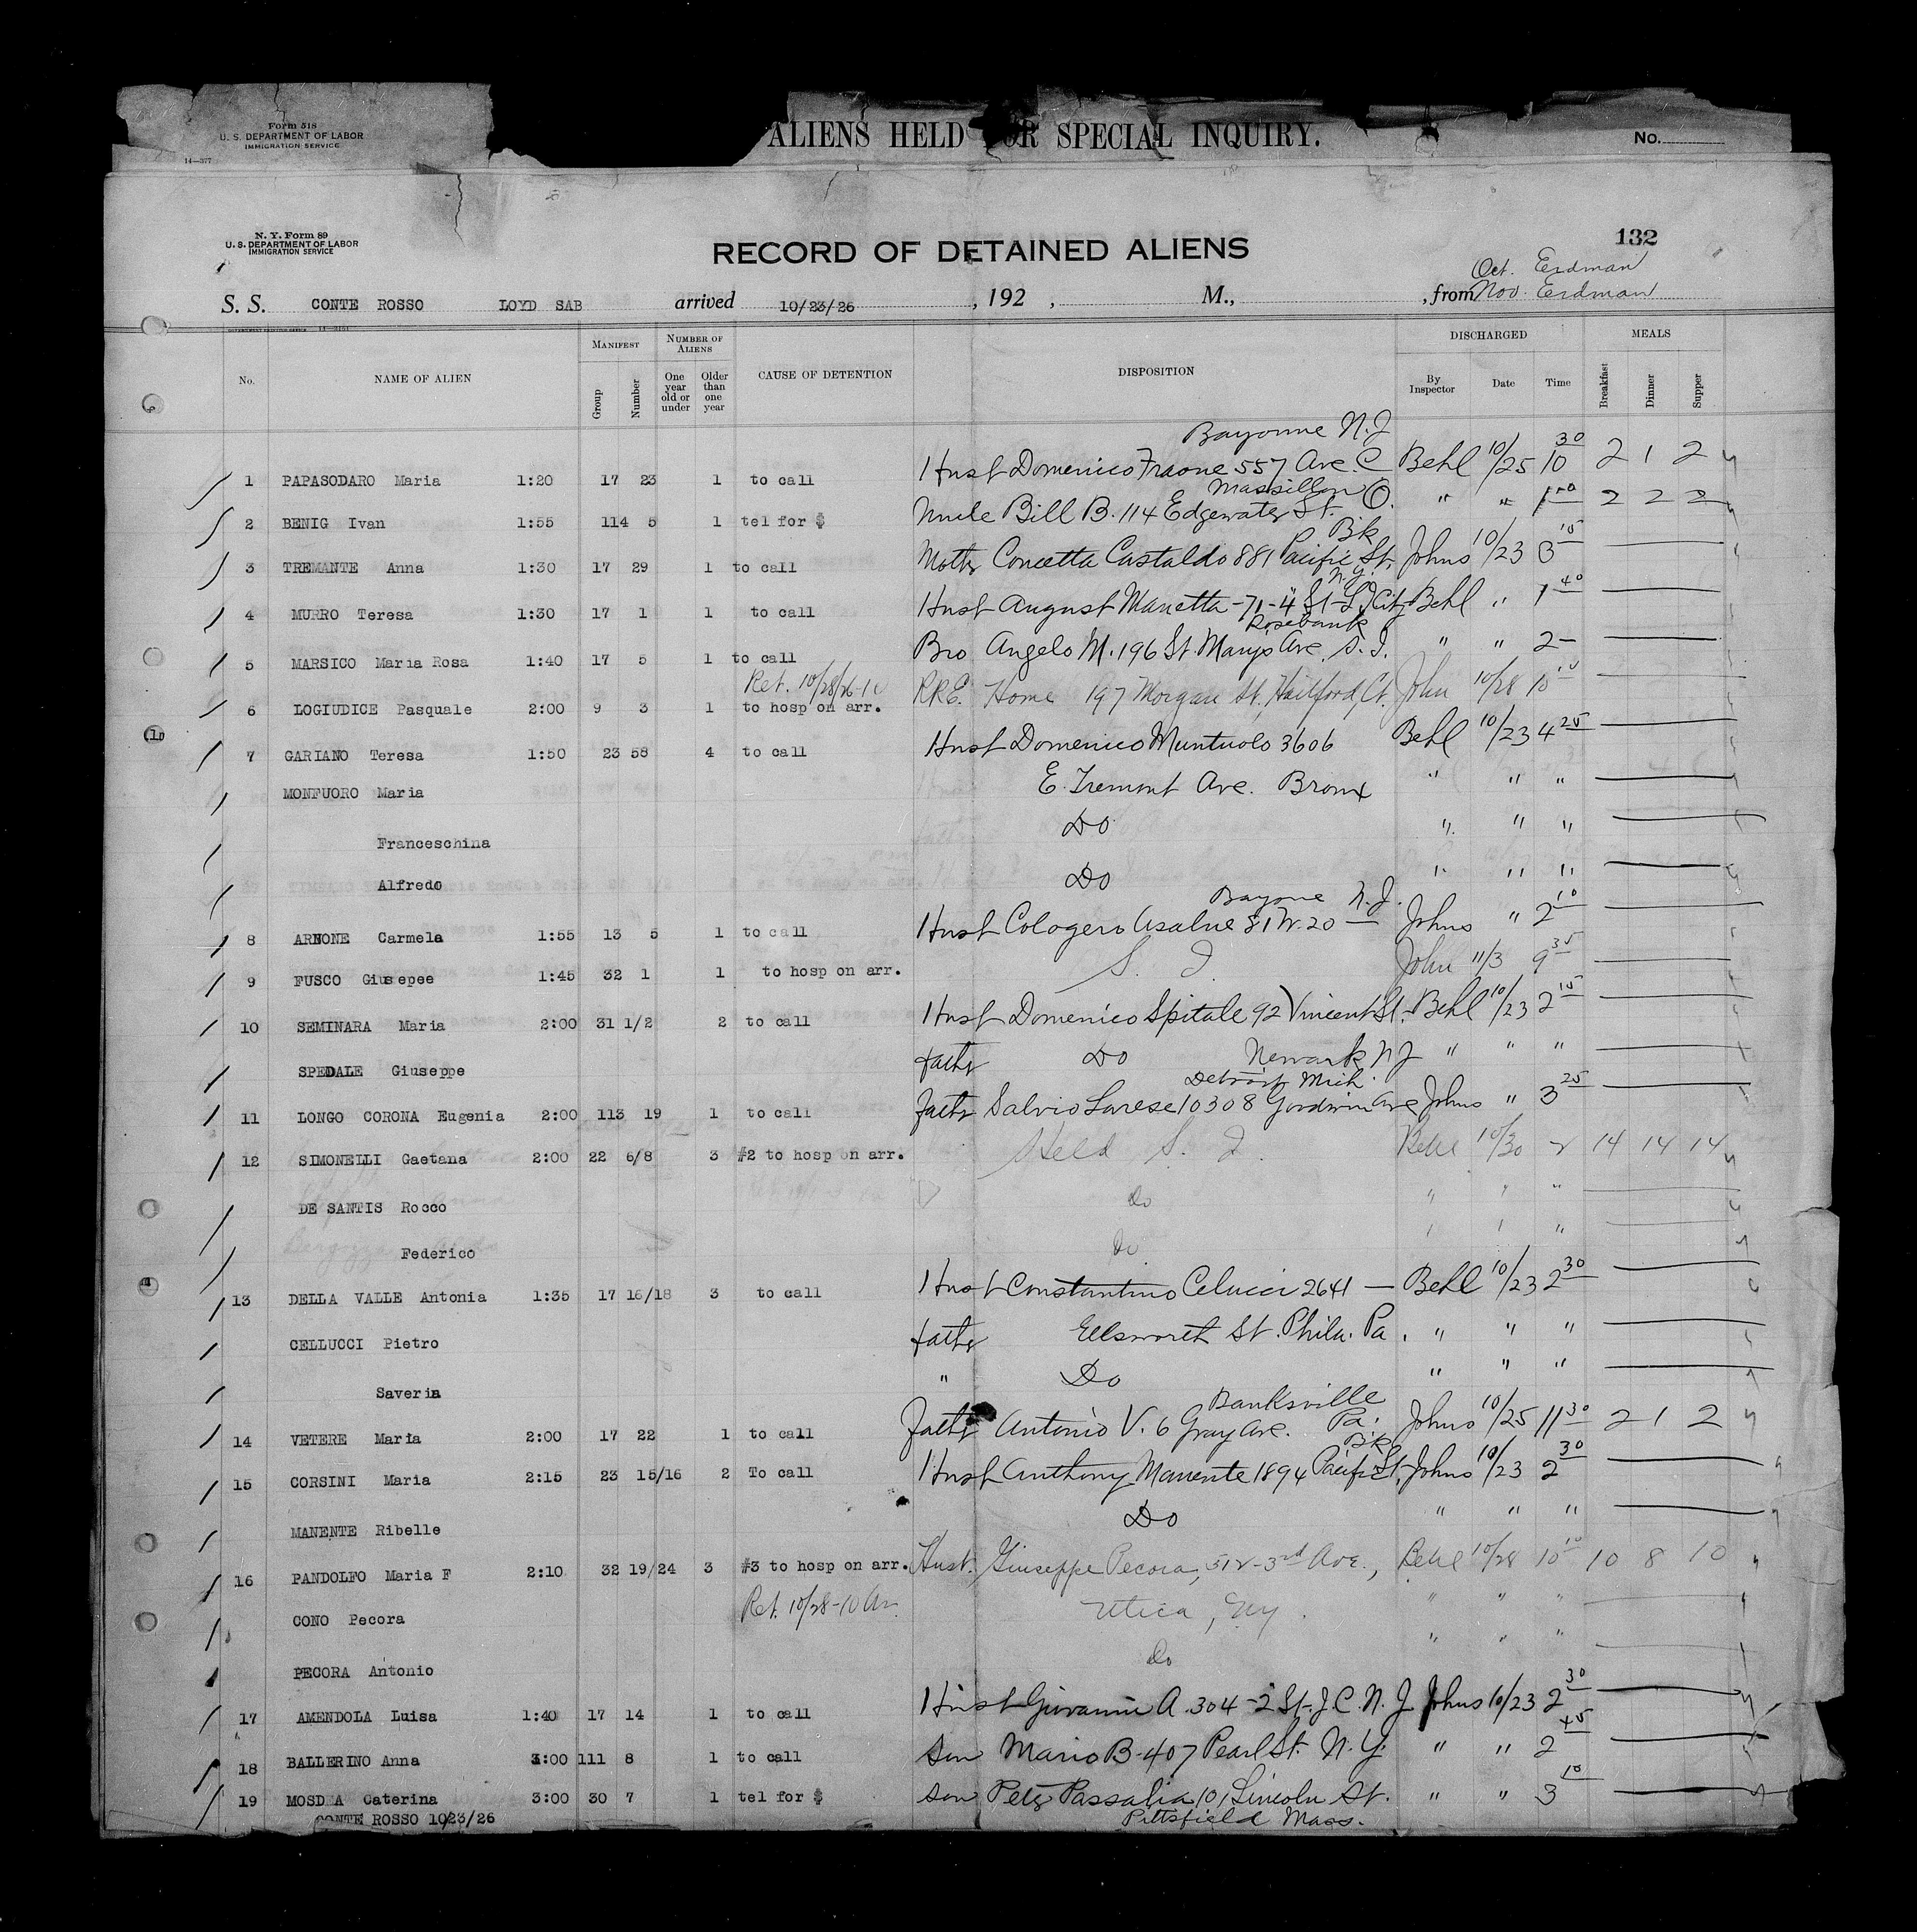 Form 518
U. S. DEPARTMENT OF LABOR
IMMIGRATION SERVICE
14—377
ALIENS HELD FOR SPECIAL INQUIRY.
No.
N. Y. Form 89
U. S. DEPARTMENT OF LABOR
IMMIGRATION SERVICE
RECORD OF DETAINED ALIENS
132
Oct. Erdman
S. S. CONTE ROSSO LOYD SAB arrived 10/23/26, 192 , M., , from Nov. Erdman
MANIFEST NUMBER OF ALIENS DISCHARGED MEALS
No. NAME OF ALIEN Group Number One year old or under Older than one year CAUSE OF DETENTION DISPOSITION By Inspector Date Time Breakfast Dinner Supper
Bayonne N.J
1 PAPASODARO Maria 1:20 17 23 1 to call Husb Domenico Fraone 557 Ave. C Behl 10/25 10 30 2 1 2
Massillon O.
2 BENIG Ivan 1:55 114 5 1 tel for $ Uncle Bill B. 114 Edgewater St. " " 1 2 2 2
Bk
3 TREMANTE Anna 1:30 17 29 1 to call Mother Concetta Castaldo 881 Pacific St. Johns 10/23 3 15
N.Y.
4 MURRO Teresa 1:30 17 1 1 to call Husb August Manetta-71-4 St-L.I City Behl " 1 40
Rosebank
5 MARSICO Maria Rosa 1:40 17 5 1 to call Bro Angelo M. 196 St. Marys Ave. S.I. " " 2—
Ret. 10/28/26-10
6 LOGIUDICE Pasquale 2:00 9 3 1 to hosp on arr. RRE. Home 197 Morgan St., Hartford, Ct. John 10/28 10 10
7 GARIANO Teresa 1:50 23 58 4 to call Husb Domenico Muntuolo 3606 Behl 10/23 4 25
MONFUORO Maria E. Tremont Ave. Bronx " " "
Franceschina Do " " "
Alfredo Do " " "
Bayone N.J.
8 ARNONE Carmela 1:55 13 5 1 to call Husb Cologero Asalne 81 W. 20 — Johns " 2 10
9 FUSCO Giusepee 1:45 32 1 1 to hosp on arr. S. I. John 11/3 9 35
10 SEMINARA Maria 2:00 31 1/2 2 to call Husb Domenico Spitale 92 Vincent St. Behl 10/23 2 15
SPEDALE Giuseppe father Do Newark NJ " " "
Detroit Mich.
11 LONGO CORONA Eugenia 2:00 113 19 1 to call father Salvio Larese 10308 Goodwin Ave Johns " 3 25
12 SIMONELLI Gaetana 2:00 22 6/8 3 #2 to hosp on arr. Held S. I. Behl 10/30 2 14 14 14
DE SANTIS Rocco Do " " "
Federico Do " " "
13 DELLA VALLE Antonia 1:35 17 16/18 3 to call Husb Constantino Celucci 2641 — Behl 10/23 2 30
CELLUCCI Pietro father Ellsworth St. Phila. Pa. " " "
Saveria " Do " " "
Banksville
14 VETERE Maria 2:00 17 22 1 to call father Antonio V. 6 Gray Ave. Pa. Johns 10/25 11 30 2 1 2
Bk
15 CORSINI Maria 2:15 23 15/16 2 To call Husb Anthony Manente 1894 Pacific St. Johns 10/23 2 30
MANENTE Ribelle Do " " "
16 PANDOLFO Maria F 2:10 32 19/24 3 #3 to hosp on arr. Husb. Giuseppe Pecora, 512-3rd Ave., Behl 10/28 10 10 10 8 10
CONO Pecora Ret. 10/28-10 Am. Utica, Ny. " " "
PECORA Antonio Do " " "
17 AMENDOLA Luisa 1:40 17 14 1 to call Husb Giovanni A. 304-2 St. J.C. N.J Johns 10/23 2 30
18 BALLERINO Anna 3:00 111 8 1 to call Son Mario B-407 Pearl St. N.Y. " " 2 45
19 MOSDEA Caterina 3:00 30 7 1 tel for $ Son Peter Passalia 101 Lincoln St. " " 3 10
CONTE ROSSO 10/23/26 Pittsfield Mass.